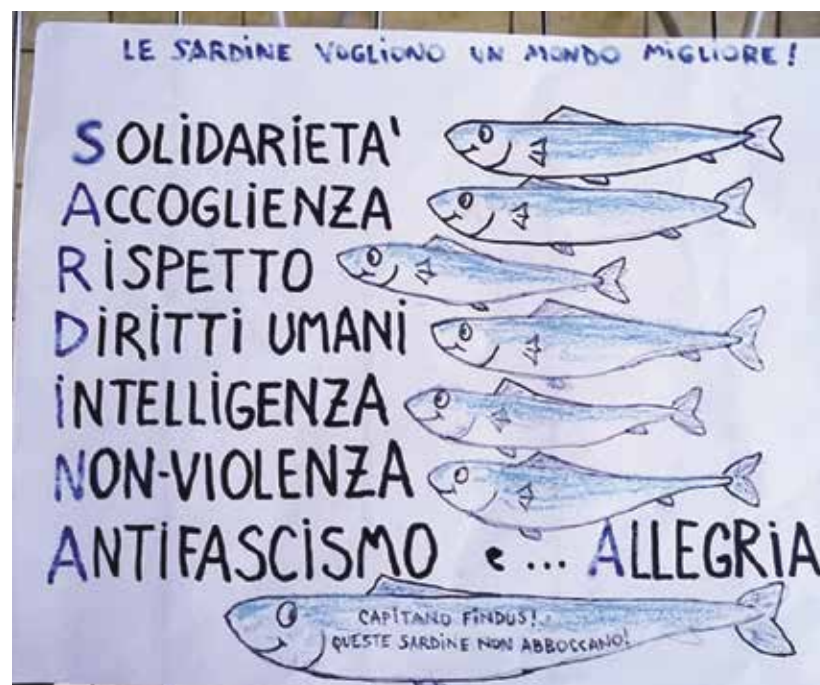 LE SARDINE VOGLIONO UN MONDO MIGLIORE!
SOLIDARIETA'
ACCOGLIENZA
RISPETTO
DIRITTI UMANI
INTELLIGENZA
NON-VIOLENZA
ANTIFASCISMO e ... ALLEGRIA
CAPITANO FINDUS!
QUESTE SARDINE NON ABBOCCANO!